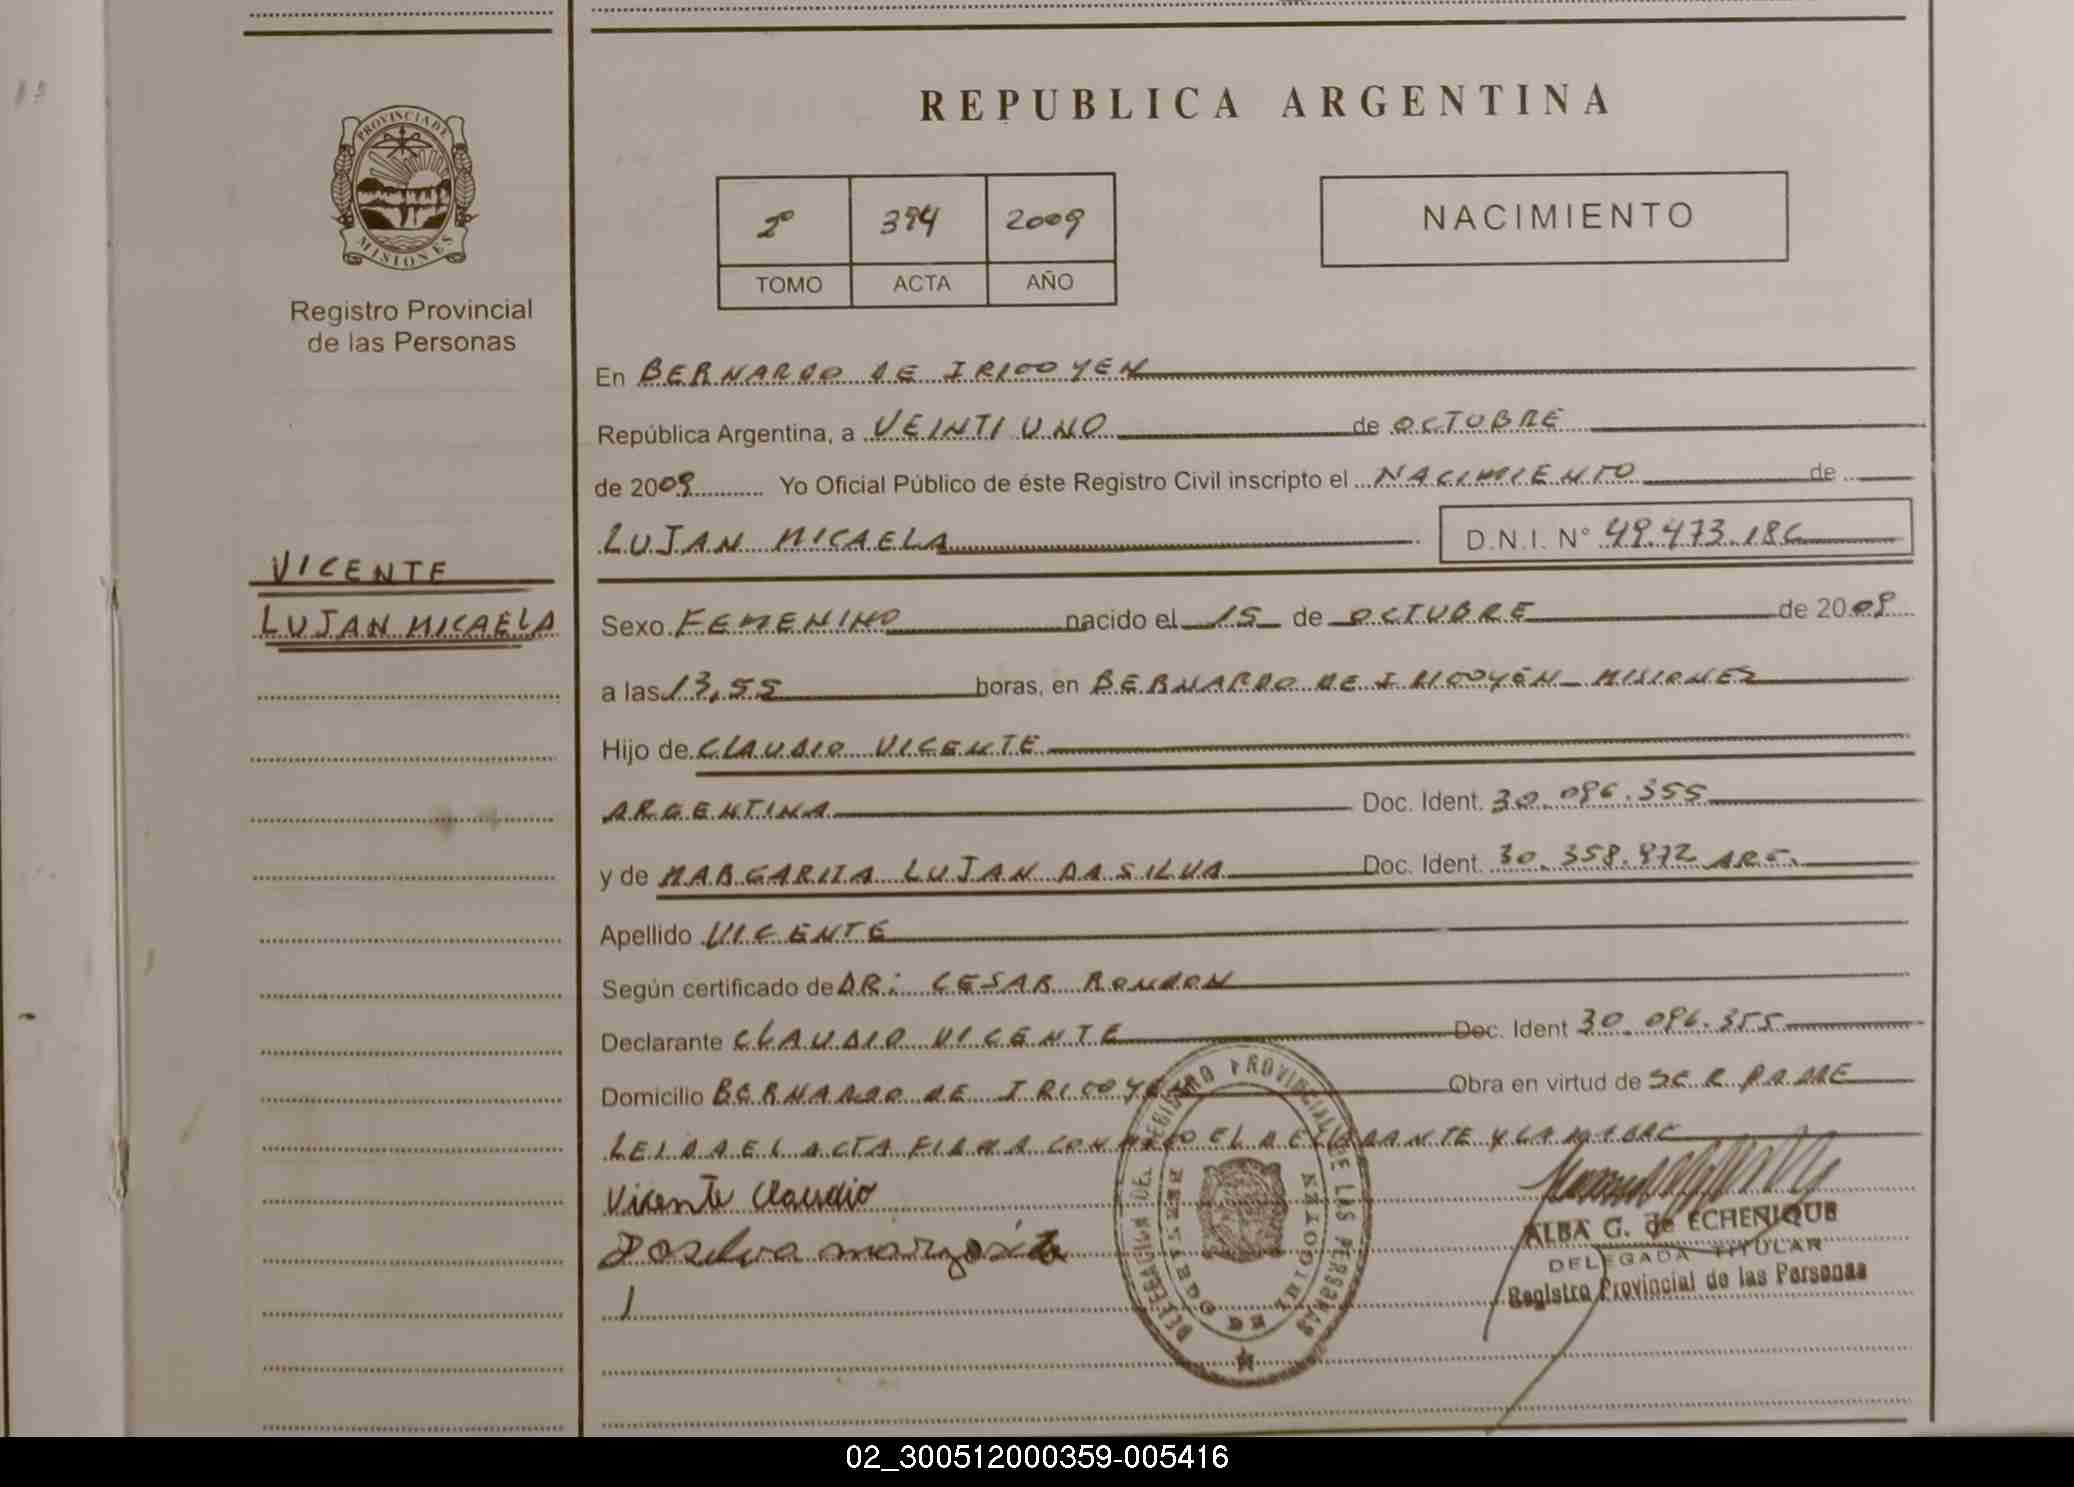 REPUBLICA ARGENTINA
PROVINCIA DE
MISIONES
Registro Provincial
de las Personas
2º 394 2009
TOMO ACTA AÑO
NACIMIENTO
En BERNARDO DE IRIGOYEN
República Argentina, a VEINTIUNO de OCTUBRE
de 2009 Yo Oficial Público de éste Registro Civil inscripto el NACIMIENTO de
LUJAN MICAELA D.N.I. N° 49.473.186
VICENTE
LUJAN MICAELA
Sexo FEMENINO nacido el 15 de OCTUBRE de 2009
a las 13,55 horas, en BERNARDO DE IRIGOYEN - MISIONES
Hijo de CLAUDIO VICENTE
ARGENTINA Doc. Ident. 30.096.355
y de MARGARITA LUJAN DA SILVA Doc. Ident. 30.358.972 ARG.
Apellido VICENTE
Según certificado de DR: CESAR RONDON
Declarante CLAUDIO VICENTE Doc. Ident 30.096.355
Domicilio BERNARDO DE IRIGOYEN Obra en virtud de SER PADRE
LEIDA EL ACTA FIRMA CONMIGO EL DECLARANTE Y LA MADRE
Vicente Claudio
Dasilva margarita
DELEGACION DEL REGISTRO PROVINCIAL DE LAS PERSONAS
BERNARDO DE IRIGOYEN
ALBA G. de ECHENIQUE
DELEGADA TITULAR
Registro Provincial de las Personas
02_300512000359-005416